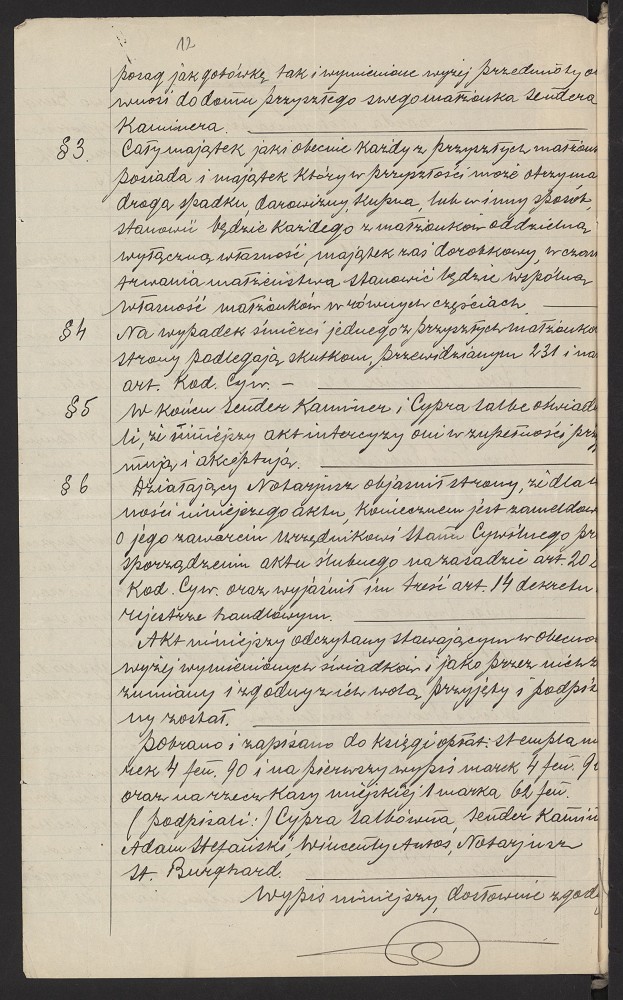 12
posag jak gotówkę tak i wymienione wyżej przedmioty
wnosi do domu przyszłego swego małżonka Sendera
Kaminera.
§ 3. Cały majątek jaki obecnie każdy z przyszłych małżon
posiada i majątek który w przyszłości może otrzyma
drogą spadku, darowizny, kupna, lub w inny sposób,
stanowić będzie każdego z małżonków oddzielną
wyłączną własność, majątek zaś dorobkowy, w czasie
trwania małżeństwa stanowić będzie wspólną
własność małżonków w równych częściach.
§ 4 Na wypadek śmierci jednego z przyszłych małżonków
strony podlegają skutkom, przewidzianym 231 i na
art. Kod. Cyw. —
§ 5 W końcu Sender Kaminer i Cypra Salbe oświad
li, że niniejszy akt intercyzy oni w zupełności przy
mują i akceptują.
§ 6 Działający Notarjusz objaśnił strony, że dla
ności niniejszego aktu, koniecznem jest zameldow
o jego zawarciu urzędnikowi Stanu Cywilnego pr
sporządzeniu aktu ślubnego na zasadzie art. 20
Kod. Cyw. oraz wyjaśnił im treść art. 14 dekretu
rejestrze handlowym.
Akt niniejszy odczytany stawającym w obecno
wyżej wymienionych świadków i jako przez nich z
zumiany i zgodny z ich wolą przyjęty i podpisa
ny został.
Pobrano i zapisano do księgi opłat: stempla m
rek 4 fen. 90 i na pierwszy wypis marek 4 fen. 90
oraz na rzecz kasy miejskiej 1 marka 62 fen.
(podpisali:) Cypra Salbówna, Sender Kamin
Adam Stefański, Wincenty Antos, Notarjusz
St. Burghard.
Wypis niniejszy, dosłownie zgod